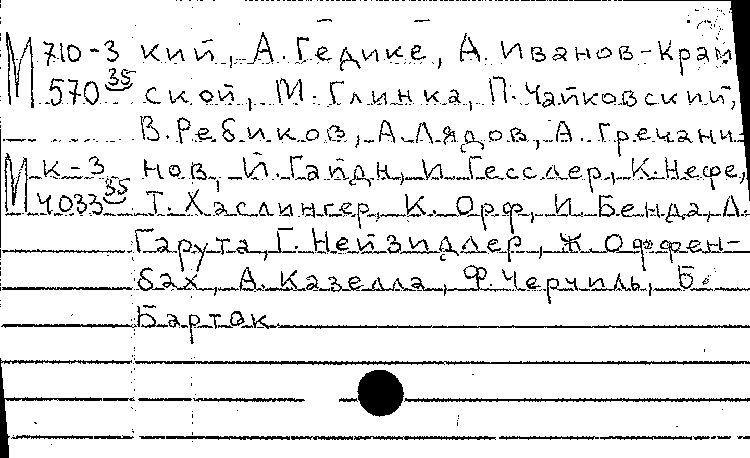 М 710-3 кий, А. Гедике, А. Иванов-Крам
570 35 ской, М. Глинка, П. Чайковский,
В. Ребиков, А. Лядов, А. Гречани-
М К-3 нов, Й. Гайдн, И. Гесслер, К. Нефе,
4033 35 Т. Хаслингер, К. Орф, И. Бенда, Л.
Гарута, Г. Нейзидлер, Ж. Оффен-
бах, А. Казелла, Ф. Черчиль, Б.
Барток